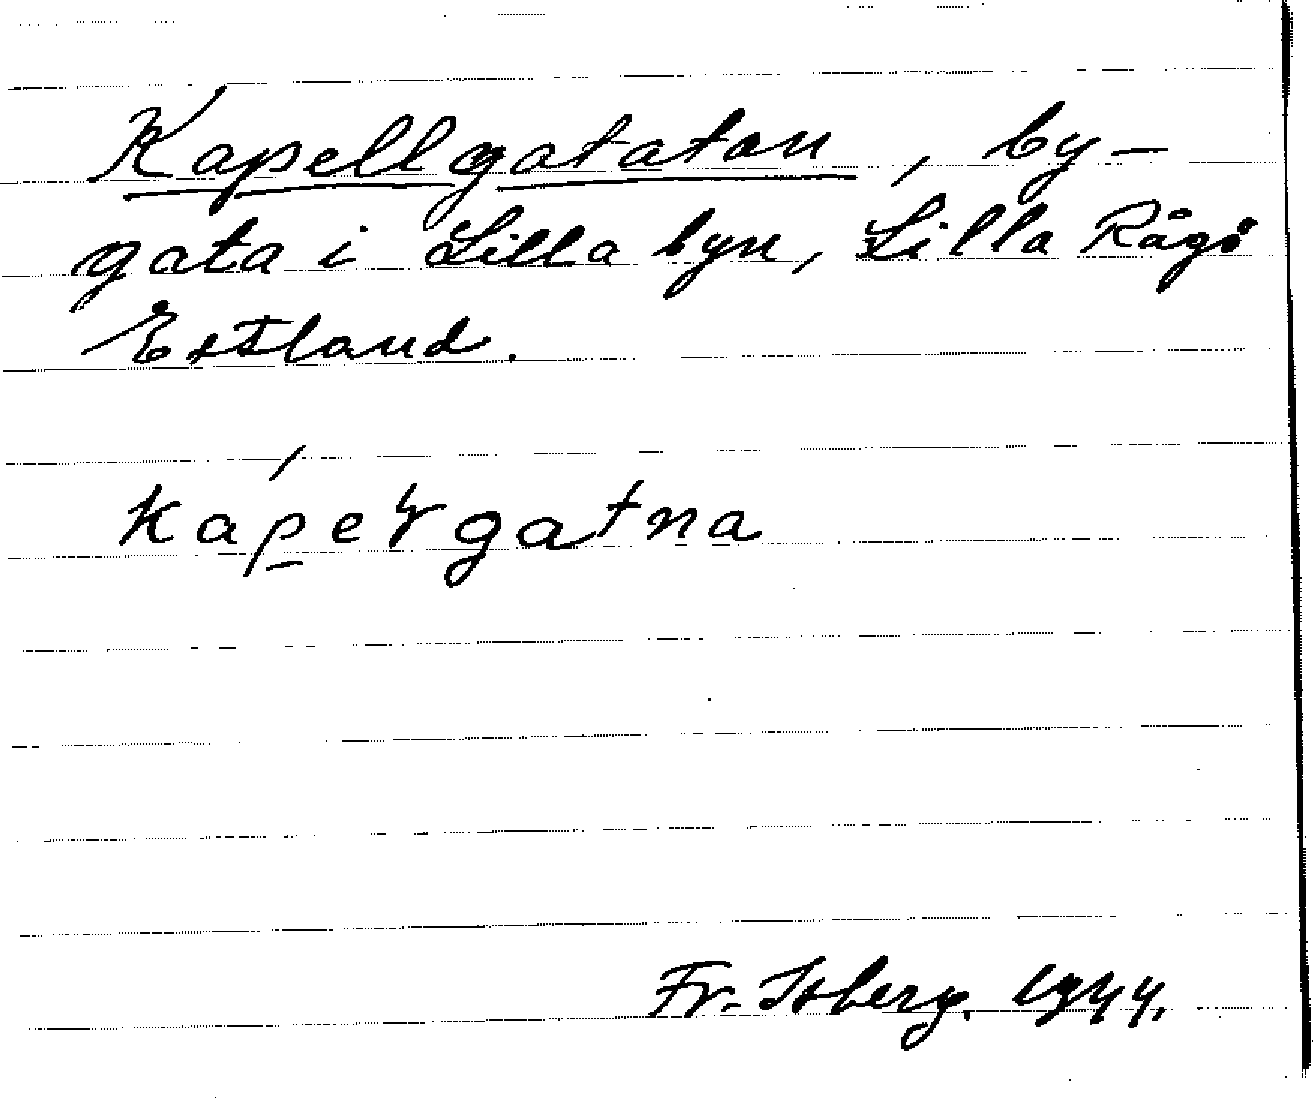 Kapellgatatan, by-
gata i Lilla byn, Lilla Rågö
Estland.
Fr. Isberg. 1944.